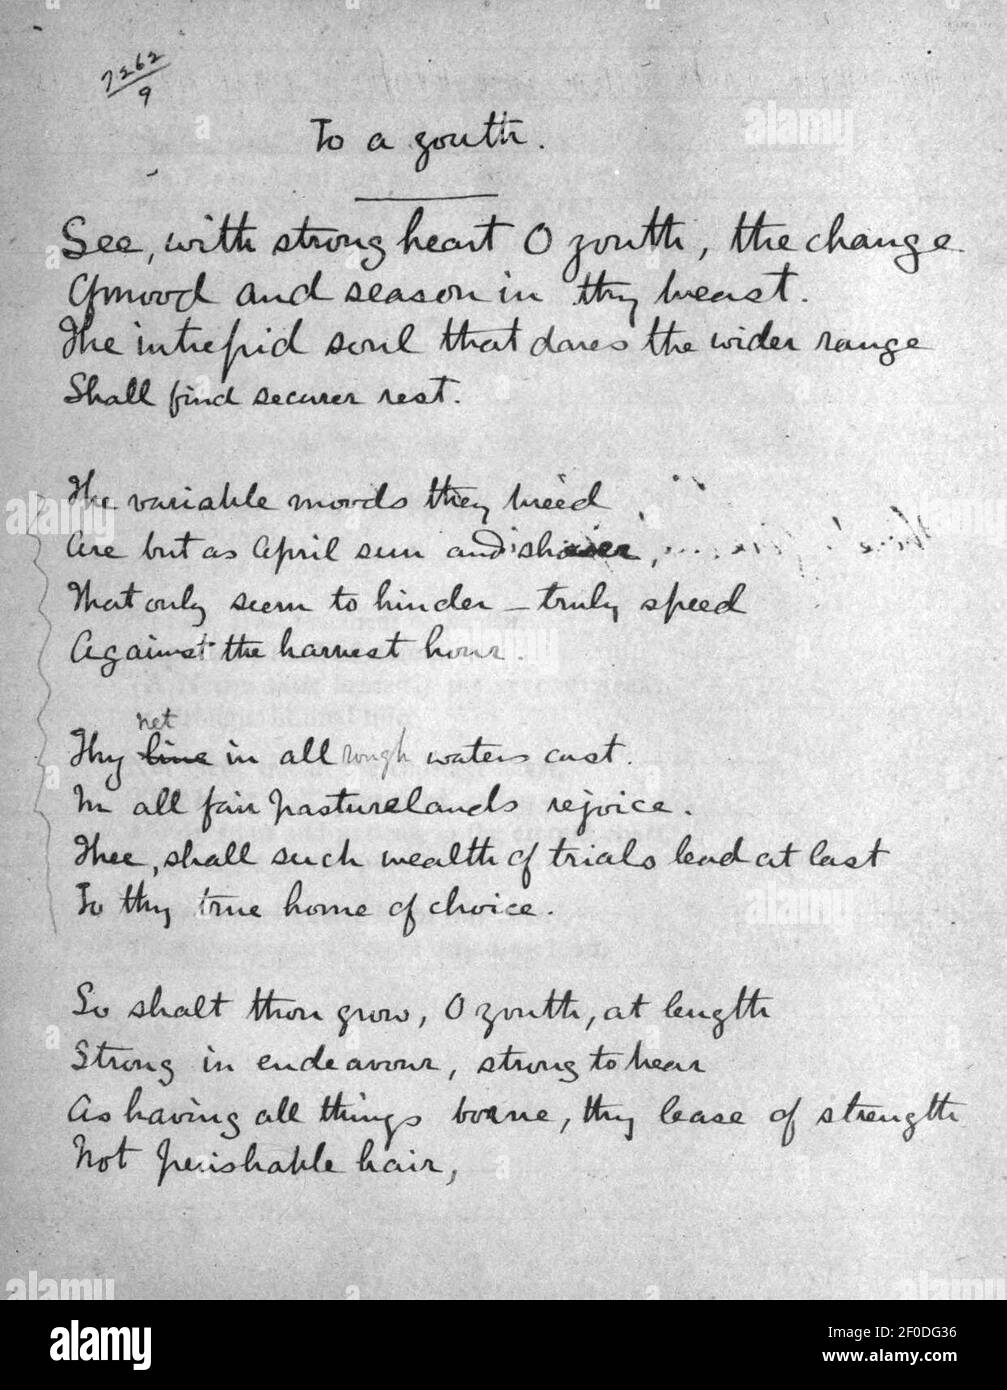 7262
9
To a youth.
See, with strong heart O youth, the change
Of mood and season in thy breast.
The intrepid soul that dares the wider range
Shall find securer rest.
The variable moods they breed
Are but as April sun and shower,
That only seem to hinder – truly speed
Against the harvest hour.
net
Thy line in all rough waters cast.
In all fair pasturelands rejoice.
Thee, shall such wealth of trials lead at last
To thy true home of choice.
So shalt thou grow, O youth, at length
Strong in endeavour, strong to bear
As having all things borne, thy lease of strength
Not perishable hair,
alamy
Image ID: 2F0DG36
www.alamy.com